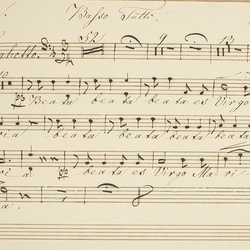 Basso Tutti.
32 9 13
10 Beata beata beata es Virgo
ria beata beata beata beata
ria beata es Virgo Mari
a.